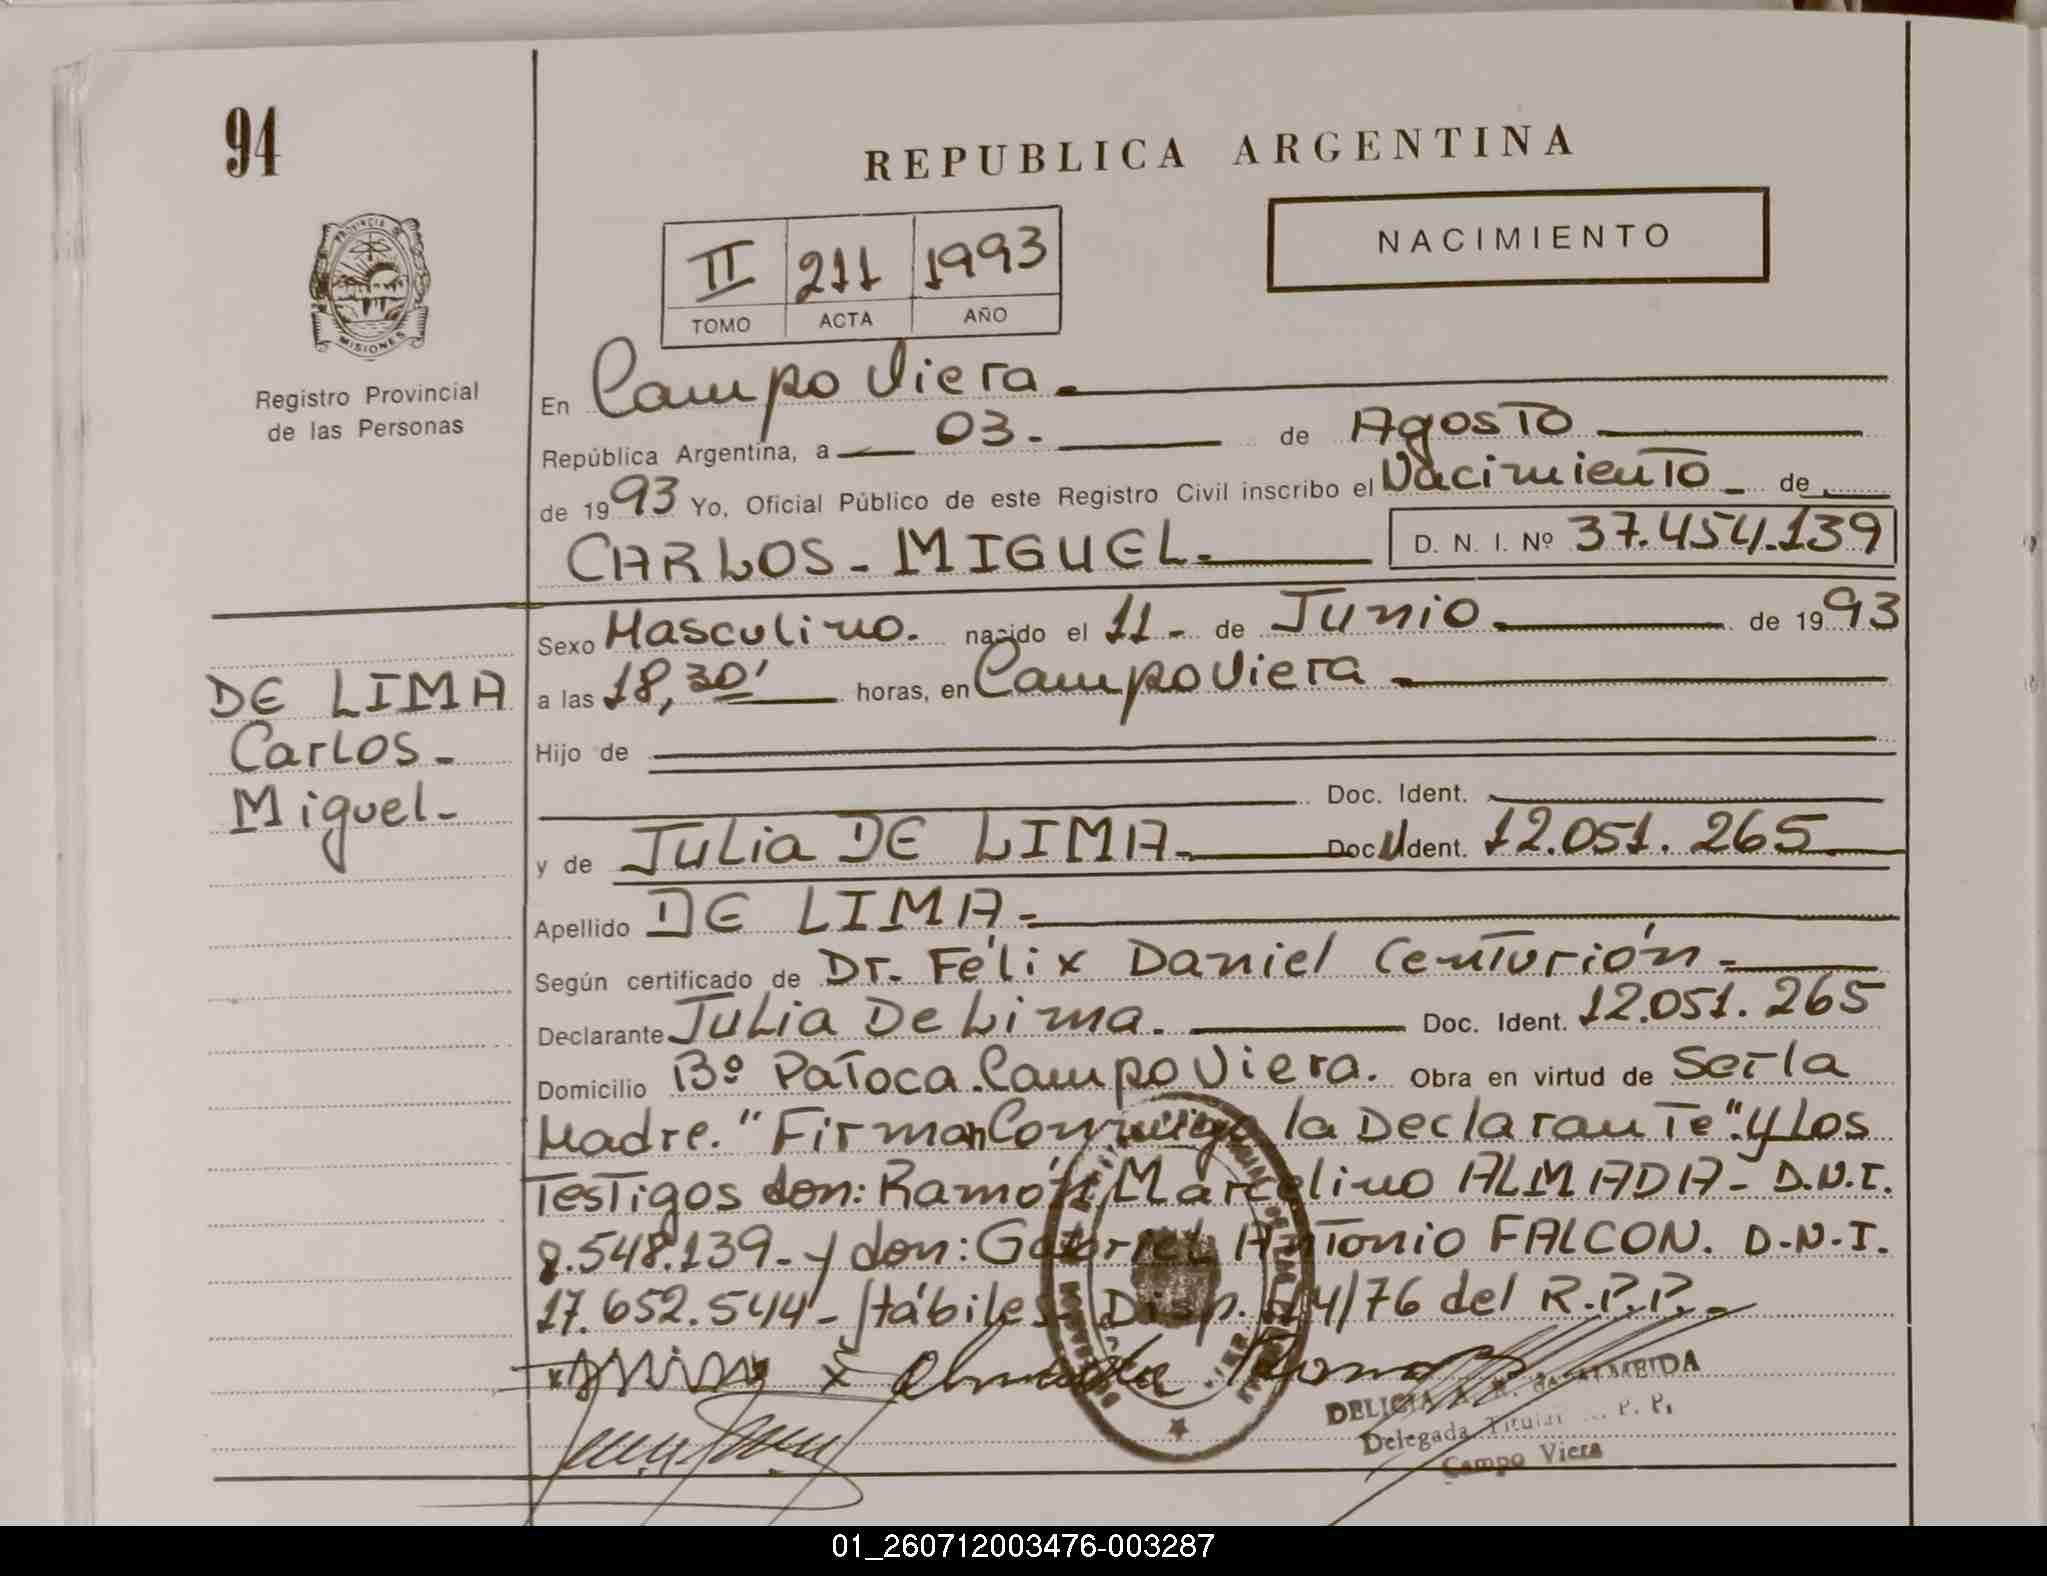 94
REPUBLICA ARGENTINA
NACIMIENTO
II 211 1993
TOMO ACTA AÑO
PROVINCIA DE
MISIONES
Registro Provincial
de las Personas
En Campo Viera.
República Argentina, a 03- de Agosto
de 1993 Yo, Oficial Público de este Registro Civil inscribo el Nacimiento - de
CARLOS - MIGUEL. D. N. I. Nº 37.454.139
Sexo Masculino. nacido el 11- de Junio. de 1993
a las 18,30' horas, en Campo Viera
DE LIMA
Carlos-
Miguel-
Hijo de
Doc. Ident.
y de Julia DE LIMA. Doc. Ident. 12.051.265
Apellido DE LIMA-
Según certificado de Dr. Félix Daniel Centurión-
Declarante Julia De Lima. Doc. Ident. 12.051.265
Domicilio Bº Patoca. Campo Viera. Obra en virtud de Ser la
Madre. "Firman Conmigo la Declarante" y Los
Testigos don: Ramón Marcelino ALMADA- D.N.I.
8.548.139- y don: Gabriel Antonio FALCON. D.N.I.
17.652.544- Hábiles Disp. /76 del R.P.P.-
DELICIA A. DE ALMEIDA
Delegada Titular P. P.
Campo Viera
01_260712003476-003287